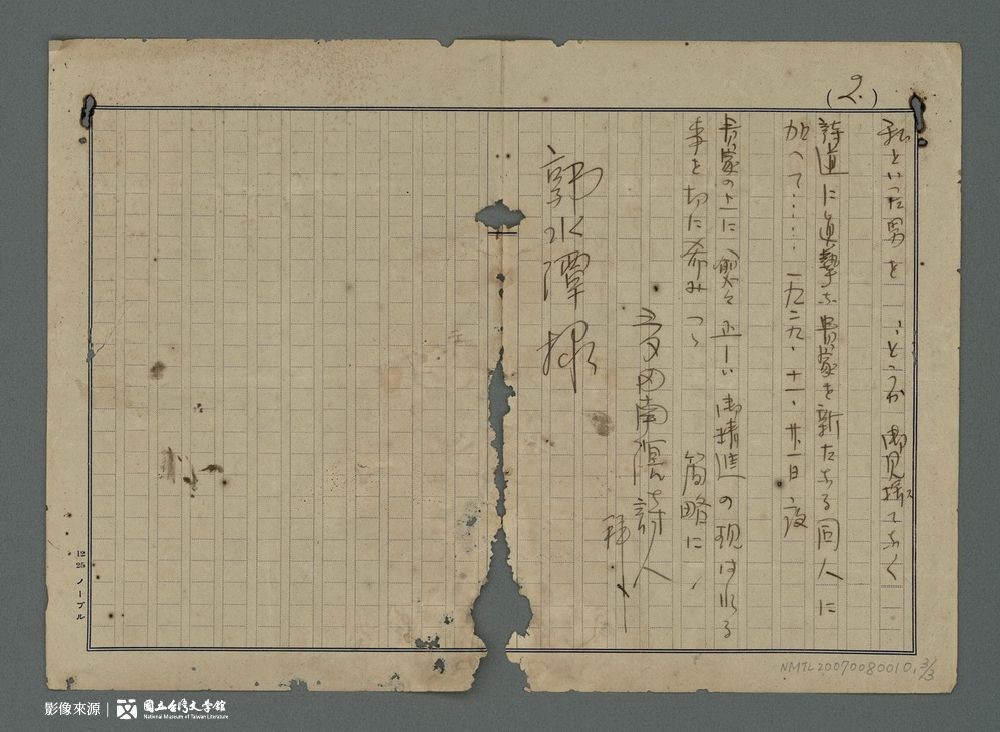 (2.)
私といった男を どうか御見捨てなく
詩道に真摯な貴家を新たなる同人に
加へて……一九二九、十一、廿一日夜
貴家の上に愈々正しい御精進の現はれる
事を切に希みつゝ 簡略に、
南溟詩人
拝
郭水潭様
12 25 ノーブル
NMTL20070080010, 3/3
影像來源 | 國立台灣文學館
National Museum of Taiwan Literature